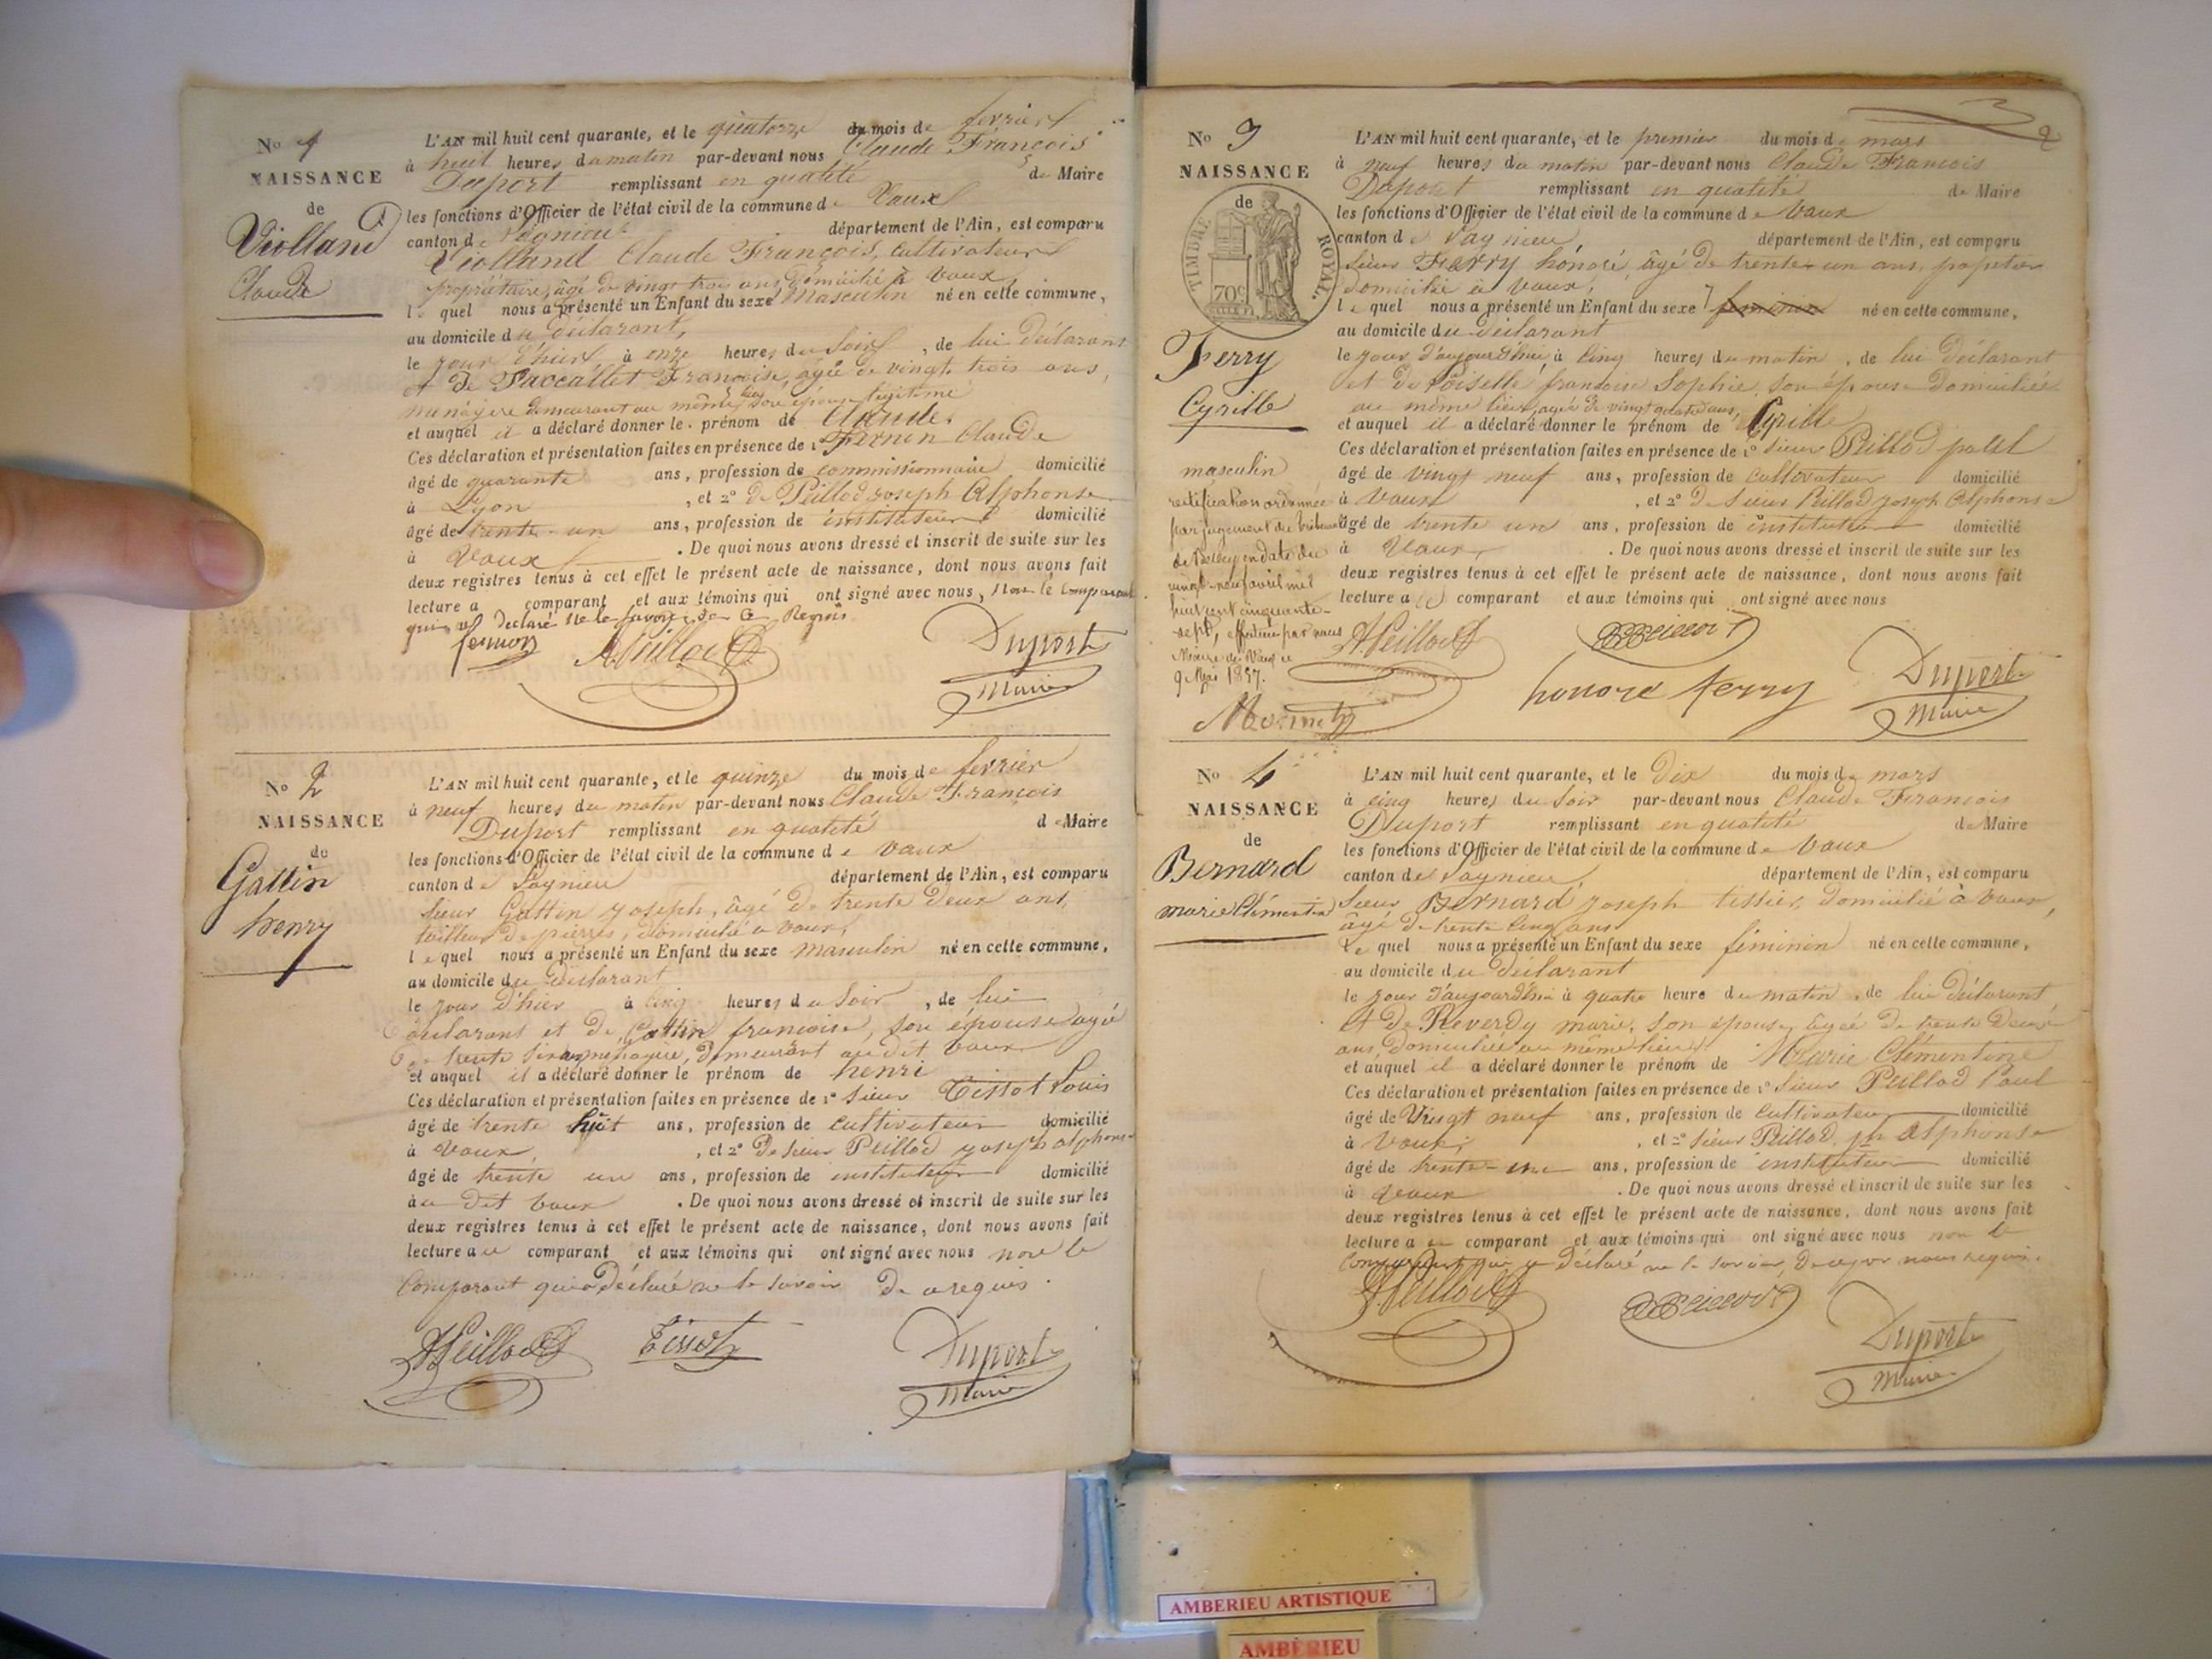 No 1
NAISSANCE
de
Violland
Claude
L'AN mil huit cent quarante, et le quatorze du mois de fevrier
à huit heures du matin par-devant nous Claude François
Duport remplissant en qualité de Maire
les fonctions d'Officier de l'état civil de la commune de Vaux
canton de Lagnieu département de l'Ain, est comparu
Violland Claude François, cultivateur
propriétaire, âgé de vingt trois ans, domicilié à Vaux,
lequel nous a présenté un Enfant du sexe Masculin né en cette commune,
au domicile du déclarant,
le jour d'hier à onze heures du soir, de lui déclarant
et de Françoise, agée de vingt trois ans,
ménagère demeurant au même lieu son épouse légitime
et auquel il a déclaré donner le prénom de Claude.
Ces déclaration et présentation faites en présence de 1° Claude
âgé de quarante ans, profession de commissionnaire domicilié
à Lyon, et 2° de Peillod Joseph Alphonse
âgé de trente-un ans, profession de instituteur domicilié
à Vaux. De quoi nous avons dressé et inscrit de suite sur les
deux registres tenus à cet effet le présent acte de naissance, dont nous avons fait
lecture a comparant et aux témoins qui ont signé avec nous, non le comparant
qui a déclaré ne le savoir de ce Requis
Peillod
Duport
Maire
No 2
NAISSANCE
de
Gattin
henry
L'AN mil huit cent quarante, et le quinze du mois de fevrier
à neuf heures du matin par-devant nous Claude François
Duport remplissant en qualité de Maire
les fonctions d'Officier de l'état civil de la commune de Vaux
canton de Lagnieu département de l'Ain, est comparu
sieur Gattin Joseph, âgé de trente deux ans,
tailleur de pierres, domicilié à Vaux,
lequel nous a présenté un Enfant du sexe masculin né en cette commune,
au domicile du déclarant
le jour d'hier à cinq heures du soir, de lui
déclarant et de françoise, son épouse agée
de trente ans ménagère, demeurant au dit Vaux
et auquel il a déclaré donner le prénom de henri
Ces déclaration et présentation faites en présence de 1° sieur Tissot Louis
âgé de trente huit ans, profession de cultivateur domicilié
à Vaux, et 2° de sieur Peillod Joseph alphonse
âgé de trente un ans, profession de instituteur domicilié
au dit Vaux. De quoi nous avons dressé et inscrit de suite sur les
deux registres tenus à cet effet le présent acte de naissance, dont nous avons fait
lecture au comparant et aux témoins qui ont signé avec nous non le
comparant qui a déclaré ne le savoir de ce requis.
Peillod
Tissot
Duport
Maire
2
No 3
NAISSANCE
de
TIMBRE ROYAL
70c
Ferry
Cyrille
masculin
rectification ordonnée
par jugement du tribunal
de Belley en date du
vingt-neuf avril mil
huit cent cinquante-
sept, effectuée par nous
Maire de Vaux le
9 Mai 1857.
L'AN mil huit cent quarante, et le premier du mois de mars
à neuf heures du matin par-devant nous Claude François
Duport remplissant en qualité de Maire
les fonctions d'Officier de l'état civil de la commune de Vaux
canton de Lagnieu département de l'Ain, est comparu
sieur Ferry honoré, âgé de trente-un ans, papetier
domicilié à Vaux,
lequel nous a présenté un Enfant du sexe féminin né en cette commune,
au domicile du déclarant
le jour d'aujourd'hui, à cinq heures du matin, de lui déclarant
et de Loiselle françoise Sophie, son épouse domiciliée
au même lieu, agée de vingt quatre ans,
et auquel il a déclaré donner le prénom de Cyrille
Ces déclaration et présentation faites en présence de 1° sieur Peillod paul
âgé de vingt neuf ans, profession de cultivateur domicilié
à Vaux, et 2° de sieur Peillod Joseph Alphonse
âgé de trente un ans, profession de instituteur domicilié
à Vaux. De quoi nous avons dressé et inscrit de suite sur les
deux registres tenus à cet effet le présent acte de naissance, dont nous avons fait
lecture au comparant et aux témoins qui ont signé avec nous
Peillod
honoré ferry
Duport
Maire
No 4
NAISSANCE
de
Bernard
marie Clémentine
L'AN mil huit cent quarante, et le dix du mois de mars
à cinq heures du soir par-devant nous Claude François
Duport remplissant en qualité de Maire
les fonctions d'Officier de l'état civil de la commune de Vaux
canton de Lagnieu département de l'Ain, est comparu
sieur Bernard Joseph tissier, domicilié à Vaux,
âgé de trente cinq ans
lequel nous a présenté un Enfant du sexe féminin né en cette commune,
au domicile du déclarant
le jour d'aujourd'hui à quatre heure du matin, de lui déclarant
et de Reverdy marie, son épouse, âgée de trente deux
ans, domiciliée au même lieu,
et auquel il a déclaré donner le prénom de Marie Clémentine
Ces déclaration et présentation faites en présence de 1° sieur Peillod Paul
âgé de vingt neuf ans, profession de cultivateur domicilié
à Vaux, et 2° sieur Peillod, jh Alphonse
âgé de trente-un ans, profession de instituteur domicilié
à Vaux. De quoi nous avons dressé et inscrit de suite sur les
deux registres tenus à cet effet le présent acte de naissance, dont nous avons fait
lecture au comparant et aux témoins qui ont signé avec nous non le
comparant qui a déclaré ne le savoir, de ce par nous requis.
Peillod
Duport
Maire
AMBERIEU ARTISTIQUE
AMBÉRIEU